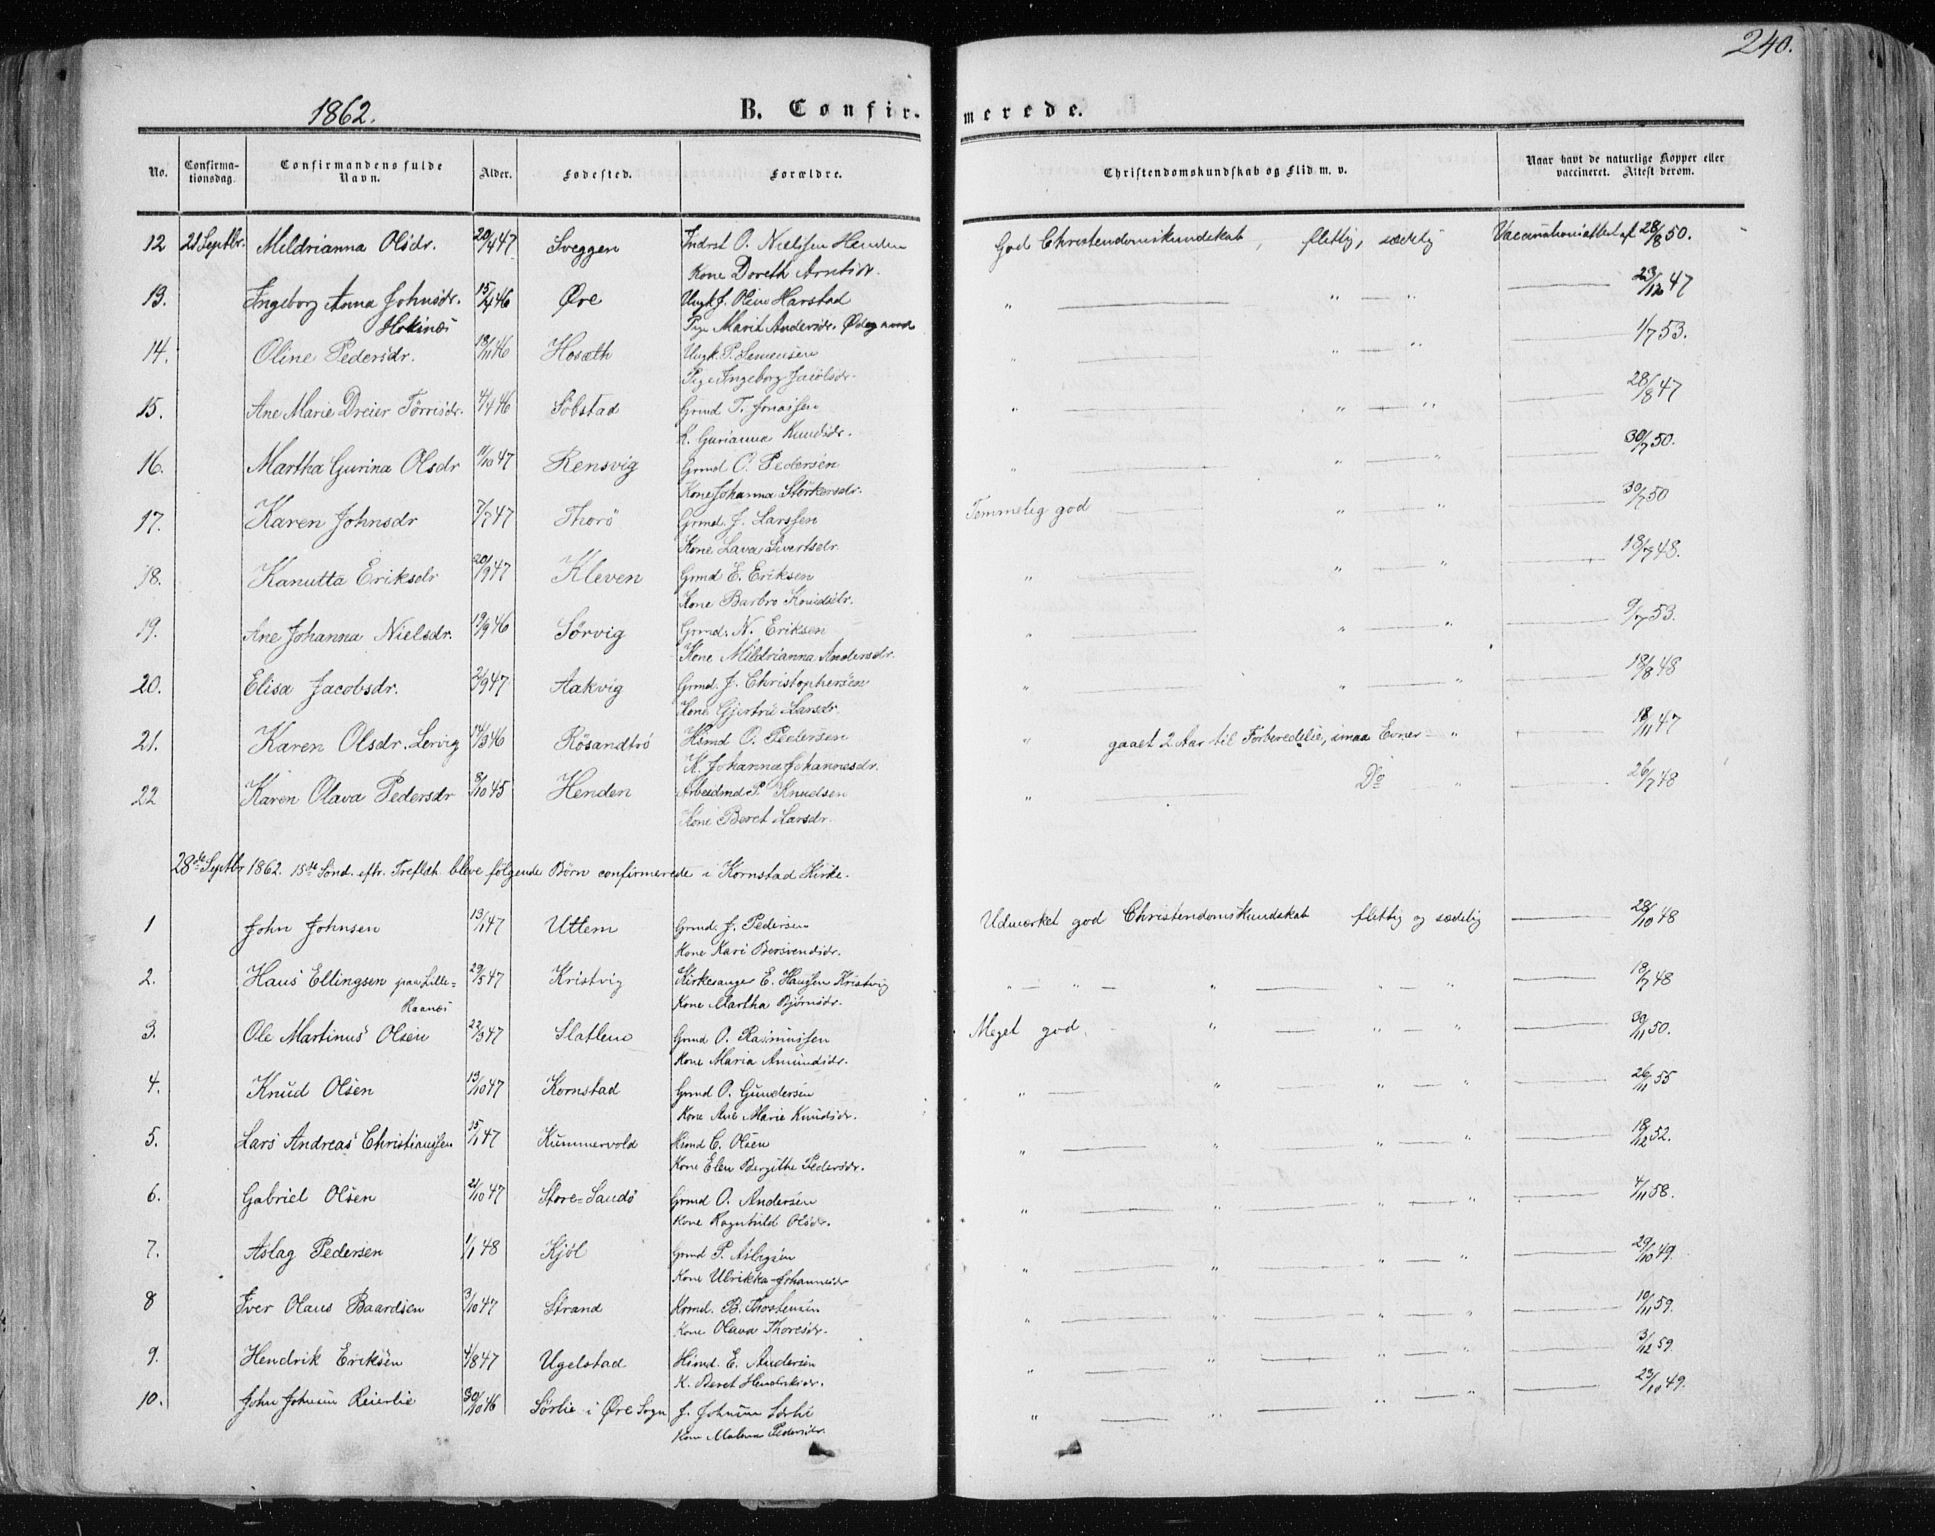 240.
1862. B. Confirmerede.
No. Confirmationsdag. Confirmandens fulde Navn. Alder. Fødested. Forældre. Christendomskundskab og Flid m. v. Naar havt de naturlige Kopper eller vaccineret. Attest derom.
12 21 Septbr. Mildrianna Olsdr. 20/4 47 Sveggen Indrst O. Nielssen Henden God Christendomskundskab, flittig, sædelig Vaccinationsattest af 28/8 50.
Kone Doreth Arntsdr.
13. Ingeborg Anna Johnsdr. 15/4 46 Øre Ungk. J. Olsen Harstad " — " — " — 23/12 47
Hokinæs Pige Marit Andersdr. Ødegaard
14. Oline Pedersdr. 18/11 46 Hosæth Ungk. P. " — " — " — 1/7 53.
Pige Ingeborg Jacobsdr.
15. Ane Marie Dreier Tørrisdr. 4/4 46 Söbstad Grmd T. Jonassen " — " — " — 28/8 47
K. Gurianna Knudsdr.
16. Martha Gurina Olsdr 11/10 47 Rensvig Grmd O. Pedersen " — " — " — 30/7 50.
Kone Johanna Størkersdr.
17. Karen Johnsdr 7/7 47 Thorö Grmd. J. Larssen Temmelig god — " — " — 30/7 50
Kone Lava Sivertsdr.
18. Kanutta Eriksdr 20/9 47 Kleven Grmd E. Eriksen " — " — " — 18/9 48.
Kone Barbro Knudsdr.
19. Ane Johanna Nielsdr. 19/9 46 Sörvig Grmd. N. Eriksen " — " — " — 9/7 53.
Kone Mildrianna Andersdr.
20. Elisa Jacobsdr. 2/9 47 Aakvig Grmd. J. Christophersen " — " — " — 18/8 48
Kone Gjertru Larsdr.
21. Karen Olsdr. Lervig 14/3 46 Rösandtrö Hsmd O. Pedersen " gaaet 2 Aar til Forberedelse, smaa Evner — " — 18/11 47
K. Johanna Johannesdr.
22 Karen Olava Pedersdr 8/10 45 Henden Arbeidmd. P. Knudsen " — Do " — 26/7 48
Kone Beret Larsdr.
28de Septbr 1862. 15de Sönd. eftr. Trefldh. bleve følgende Børn confirmerede i Kornstad Kirke.
1 John Johnsen 13/1 47 Uttem Grmd. J. Pedersen Udmærket god Christendomskundskab flittig og sædelig — 28/10 48
Kone Kari Bersvendsdr.
2. Hans Ellingsen paa Lille- 29/5 47 Kristvig Kirkesanger E. Hanssen Kristvig " — " — " " — " — 19/7 48
Raanæs Kone Martha Bjørnsdr.
3. Ole Martinus Olsen 22/3 47 Slatlem Grmd O. Rasmussen Meget god " — " — " — 30/11 50.
Kone Maria Amundsdr.
4. Knud Olsen 13/10 47 Kornstad Grmd O. Gundersen " — " — " — " — 26/11 55
Kone Ane Marie Knudsdr.
5. Lars Andreas Christianssen 15/1 47 Kummervold Hsmd C. Olsen " — " — " — " — 18/12 52.
Kone Elen Bergithe Pedersdr.
6. Gabriel Olsen 21/10 47 Store-Sandö Grmd O. Andersen " — " — " — " — 4/11 58.
Kone Ragnhild Olsdr.
7. Aslag Pedersen 1/1 48 Kjöl Grmd P. Aslagsen " — " — " — " — 29/10 49.
Kone Ulrikka Johannesdr
8 Iver Olaus Baardsen 3/10 47 Strand B. Thostensen " — " — " — " — 10/11 59.
Kone Olava Thoresdr.
9. Hendrik Eriksen 4/8 47 Ugelstad Hsmd. E. Andersen " — " — " — " — 3/12 59.
K. Beret Hendriksdr.
10. John Johnsen Reierlie 30/10 46 Sörlie i Øre Sogn J. Johnsen Sørli " — " — " — " — 23/10 49.
Kone Malena Pedersdr.